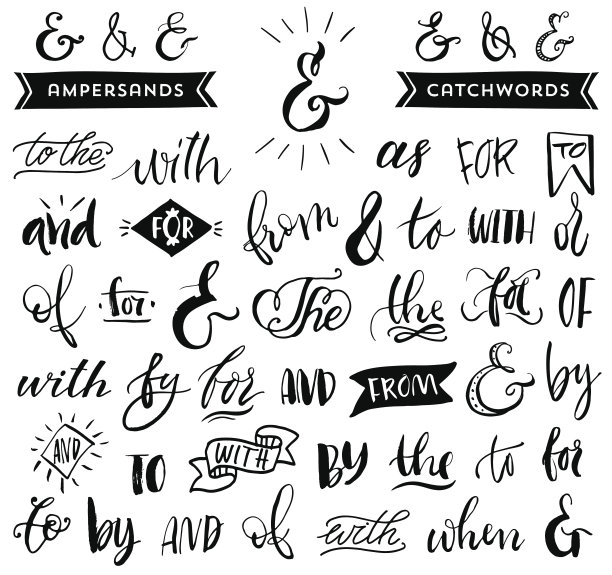 & & & & & & &
AMPERSANDS CATCHWORDS
to the with as FOR TO
and FOR from & to WITH or
of for & The the for OF
with by for AND FROM & by
AND TO WITH BY the to for
to by AND of with when &